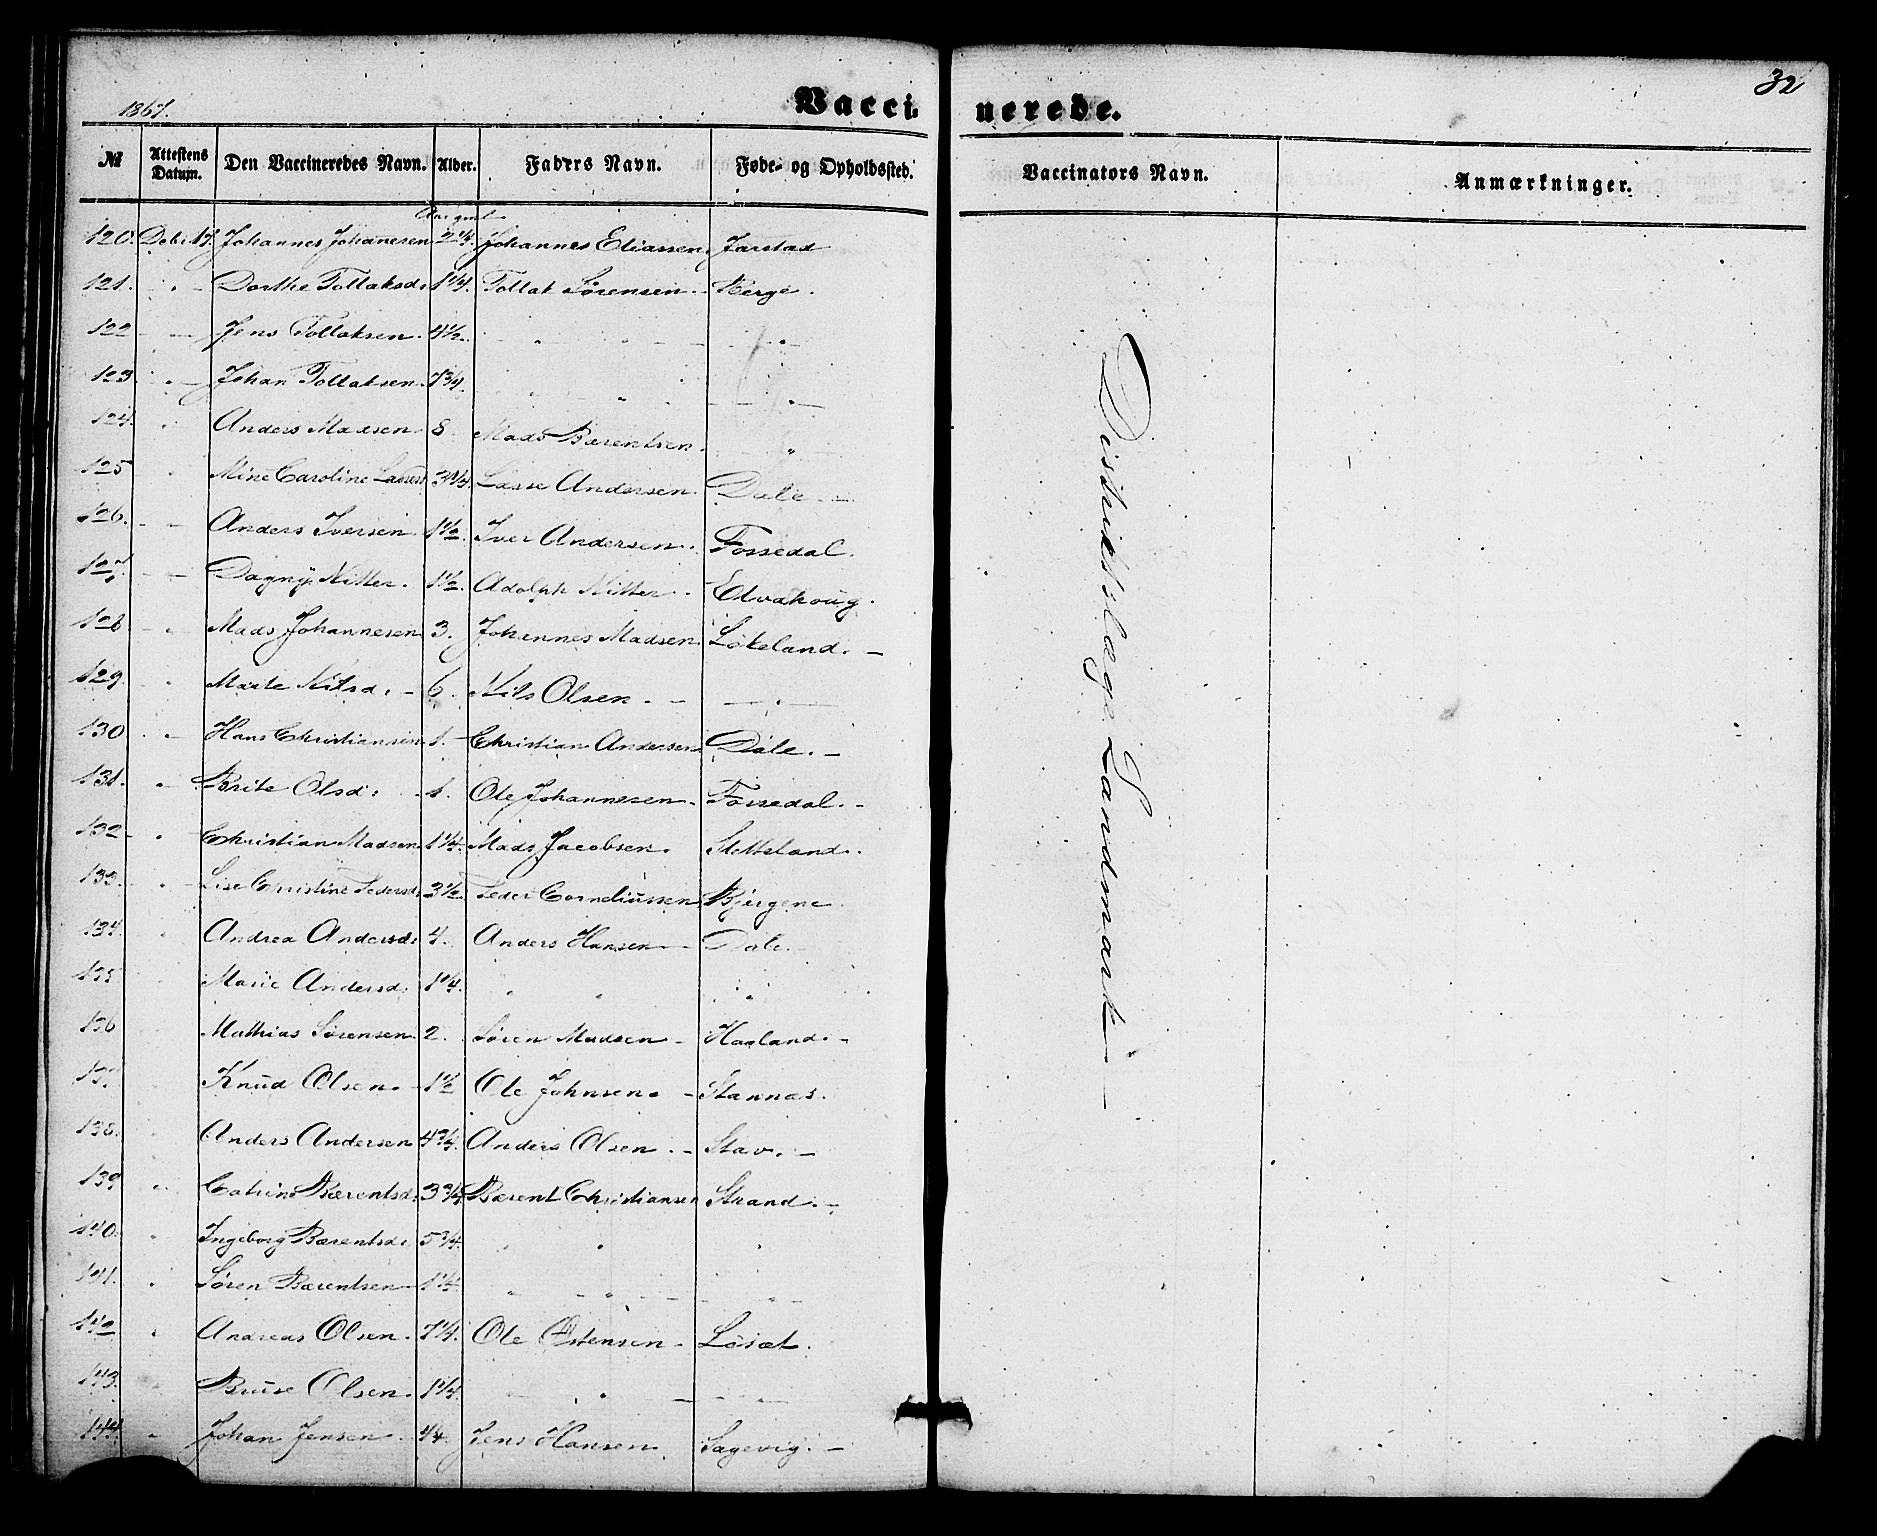 32
1867.
Vaccinerede.
№ Attestens Datum. Den Vaccineredes Navn. Alder. Faders Navn. Føde- og Opholdssted. Vaccinators Navn. Anmærkninger.
Aar gml.
120. Johannes Johanesen 2 1/4. Johannes Eliassen. Jarstad
121. " Dorthe Tollaksd. 1 1/4. Tollak Sørensen. Berge.
122 Jens Tollaksen. 4 1/2. " " "
123 " Johan Tollaksen. 7 3/4. " " "
124. " Anders Madsen 8. Mads Bærentsen. "
125 " Mine Caroline Lassesd 3 1/4. Lasse Andersen. Dale.
126. Anders Iversen. 1 1/2. Iver Andersen. Fossedal.
127. Dagny Nitter. 1 1/2. Adolph Nitter. Elvakoug.
128 " Mads Johannesen 3. Johannes Madsen Løkeland.
129. " Marte Nilsd. 6. Nils Olsen. "
130 " Hans Christiansen 1. Christian Andersen Dale.
131. " Brite Olsd. 1. Ole Johannesen. Fossedal.
132 " Christian Madsen 1 1/4. Mads Jacobsen. Sletteland.
133. " Lise Christine Pedersd. 3 1/2. Peder Corneliussen Bjergene.
134. " Andrea Andersd. 4. Anders Hansen Dale.
135 Marie Andersd. 1 1/4. " " "
136 Mathias Sørensen. 2. Søren Madsen Haaland.
137 Knud Olsen. 1 1/2 Ole Johnsen. Stannas.
138. Anders Andersen 4 3/4. Anders Olsen. Stav.
139 " Catrine Bærentsd. 3 3/4. Bærent Christiansen Strand.
140. " Ingeborg Bærentsd. 5 3/4. " " "
141. " Søren Bærentsen 1 1/4. " " "
142 " Andreas Olsen. 7 1/4. Ole Østensen. Løsæt.
143. " Olsen. 1 1/4. " " "
144. " Johan Jensen. Jens Hansen. Sagevig.
Distriktslæge Landmark